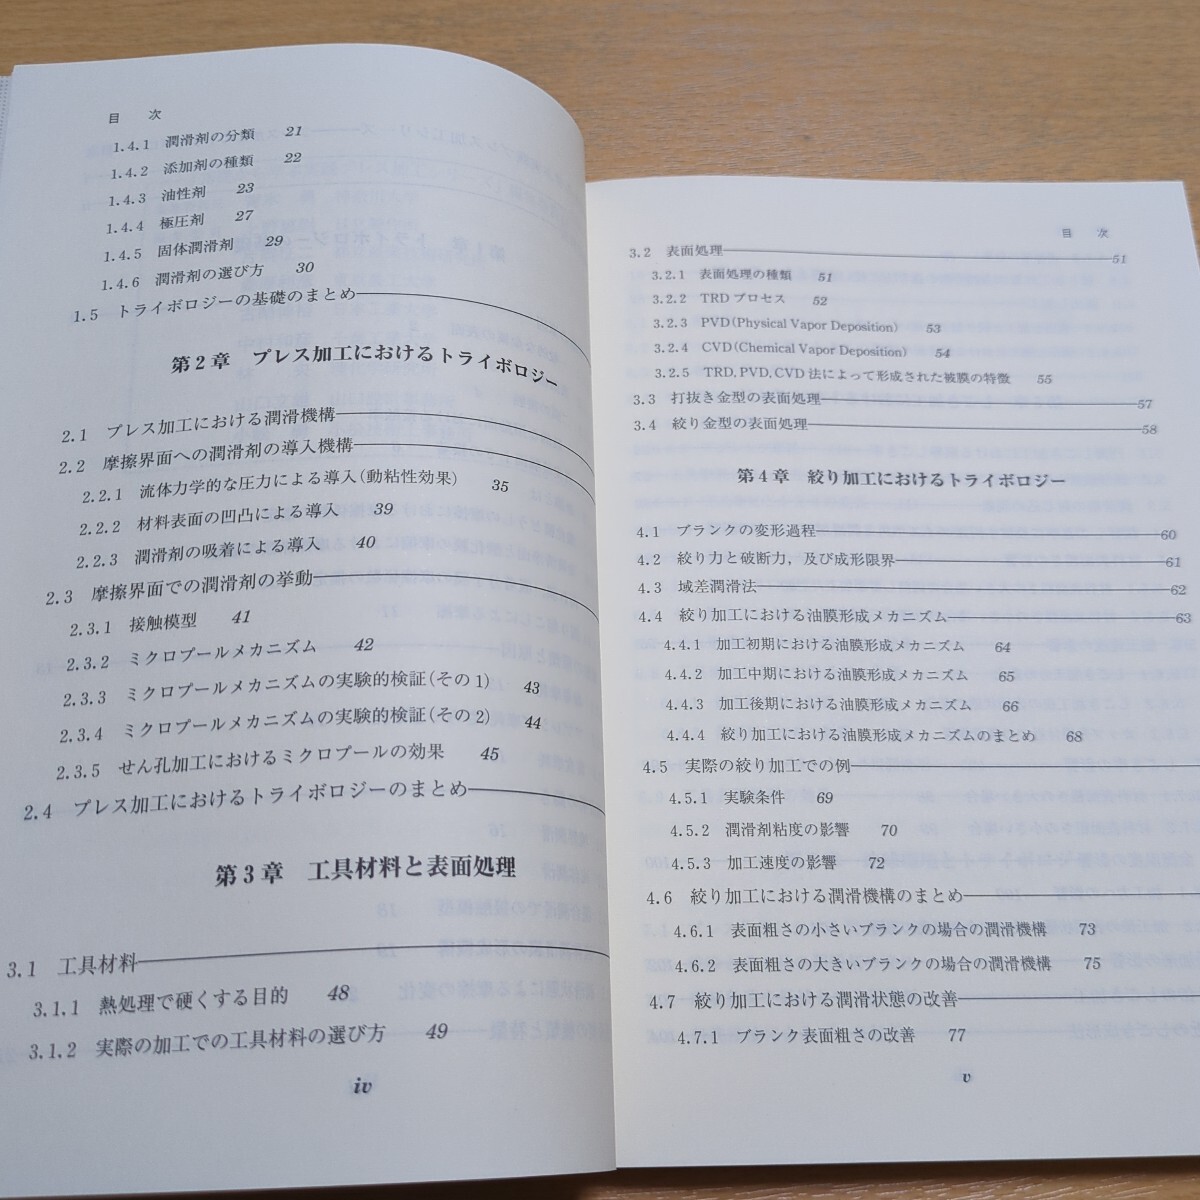 目 次
1.4.1 潤滑剤の分類 21
1.4.2 添加剤の種類 22
1.4.3 油性剤 23
1.4.4 極圧剤 27
1.4.5 固体潤滑剤 29
1.4.6 潤滑剤の選び方 30
1.5 トライボロジーの基礎のまとめ
第2章 プレス加工におけるトライボロジー
2.1 プレス加工における潤滑機構
2.2 摩擦界面への潤滑剤の導入機構
2.2.1 流体力学的な圧力による導入(動粘性効果) 35
2.2.2 材料表面の凹凸による導入 39
2.2.3 潤滑剤の吸着による導入 40
2.3 摩擦界面での潤滑剤の挙動
2.3.1 接触模型 41
2.3.2 ミクロプールメカニズム 42
2.3.3 ミクロプールメカニズムの実験的検証(その1) 43
2.3.4 ミクロプールメカニズムの実験的検証(その2) 44
2.3.5 せん孔加工におけるミクロプールの効果 45
2.4 プレス加工におけるトライボロジーのまとめ
第3章 工具材料と表面処理
3.1 工具材料
3.1.1 熱処理で硬くする目的 48
3.1.2 実際の加工での工具材料の選び方 49
iv
目 次
3.2 表面処理 51
3.2.1 表面処理の種類 51
3.2.2 TRDプロセス 52
3.2.3 PVD(Physical Vapor Deposition) 53
3.2.4 CVD(Chemical Vapor Deposition) 54
3.2.5 TRD, PVD, CVD法によって形成された被膜の特徴 55
3.3 打抜き金型の表面処理 57
3.4 絞り金型の表面処理 58
第4章 絞り加工におけるトライボロジー
4.1 ブランクの変形過程 60
4.2 絞り力と破断力,及び成形限界 61
4.3 域差潤滑法 62
4.4 絞り加工における油膜形成メカニズム 63
4.4.1 加工初期における油膜形成メカニズム 64
4.4.2 加工中期における油膜形成メカニズム 65
4.4.3 加工後期における油膜形成メカニズム 66
4.4.4 絞り加工における油膜形成メカニズムのまとめ 68
4.5 実際の絞り加工での例
4.5.1 実験条件 69
4.5.2 潤滑剤粘度の影響 70
4.5.3 加工速度の影響 72
4.6 絞り加工における潤滑機構のまとめ
4.6.1 表面粗さの小さいブランクの場合の潤滑機構 73
4.6.2 表面粗さの大きいブランクの場合の潤滑機構 75
4.7 絞り加工における潤滑状態の改善
4.7.1 ブランク表面粗さの改善 77
v